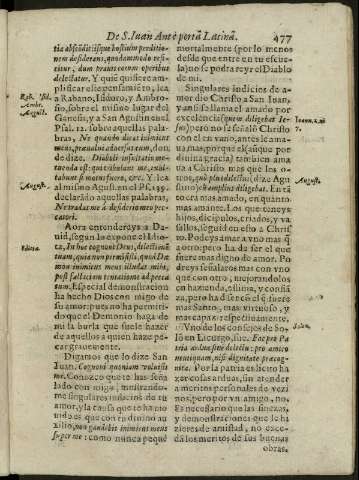 De S. Iuan Antè portā Latinā. 477
tia abscōdit: ipsique hostium perditio-
nem desiderans, quodammodo resti-
tuitur, dum praestorum operibus
delectatur. Y quiē quisiere am-
plificar este pensamiēto, lea
a Rabano, Isidoro, y Ambro-
sio, sobre el mismo lugar del
Genesis, y a San Agustin en el
Psal. 12. sobre aquellas pala-
bras, Ne quando dicat inimicus
meus, praeualui aduersus eum, don-
de dize. Diaboli insultatio me-
tuenda est: qui tribulant me, exul-
tabunt si motus fuero, &c. Y lea
al mismo Agustin en el Ps. 139.
declarādo aquellas palabras,
Ne tradas me à desiderio meo pec-
catori.
Rab. Isid.
Ambr.
August.
August.
Aora entendereys a Da-
uid, segun lo expone el Idio-
ta, In hoc cognoui Deus, dilectionē
tuam, quia non permisisti, quòd Dæ-
mon inimicus meus illudat mihi,
post sallicium tentationis ad pecca-
tum. Especial demonstracion
ha hecho Dios con migo de
su amor: pues no ha permiti-
do que el Demonio haga de
mi la burla que suele hazer
de aquellos a quien haze pe-
car grauemente.
Idiota.
Digamos que lo dize San
Iuan. Cognoui quoniam voluisti
me. Conozco que te has seña-
lado con migo, mostrando-
me singulares indicios de tu
amor, y la causa que te ha mo-
uido es que con tu diuino au-
xilio, non gaudebit inimicus meus
super me: como nunca pequè
mortalmente (por lo menos
desde que entre en tu escue-
la) no se podra reyr el Diablo
de mi.
Singulares indicios de a-
mor dio Christo a San Iuan,
y ansi se llama el amado por
excelencia (quem diligebat Ie-
sus) pero no se señalò Christo
con el en vano, antes le ama-
ua mas, porque el (aunque por
diuina gracia) tambien ama
ua a Christo mas que los o-
tros, and plus dilectus (dize Agu
stino) ille amplius diligebat. En tā
to eres mas amado, en quanto
mas amares. Los que teneys
hijos, dicipulos, criados, y va
sallos, seguid en esto a Chris
to. Podeys amar a vno mas q̄
a otro pero ha de ser el que
fuere mas digno de amor. Po
dreys señalaros mas con vno
que con otro, mejorandole
en hazienda, estima, y confiā
za, pero ha de ser cō el q̄ fuere
mas Santo, mas virtuoso, y
mas capaz respectiuamente.
Ioann. c. 21
7.
August.
Vno de los consejos de So-
lō en Licurgo, fue. Fac pro Pa
tria ad inuste deleētu: pro amico
nunquam, nisi dignitate præcog-
nita. Por la patria es licito ha
zer cosas arduas, sin atender
a meritos personales de vezi
nos, pero por vn amigo, no.
Es necessario que las finezas,
y demonstraciones que le hi
zieres de amistad, no exce-
dā los meritos de sus buenas
Solon.
obras.